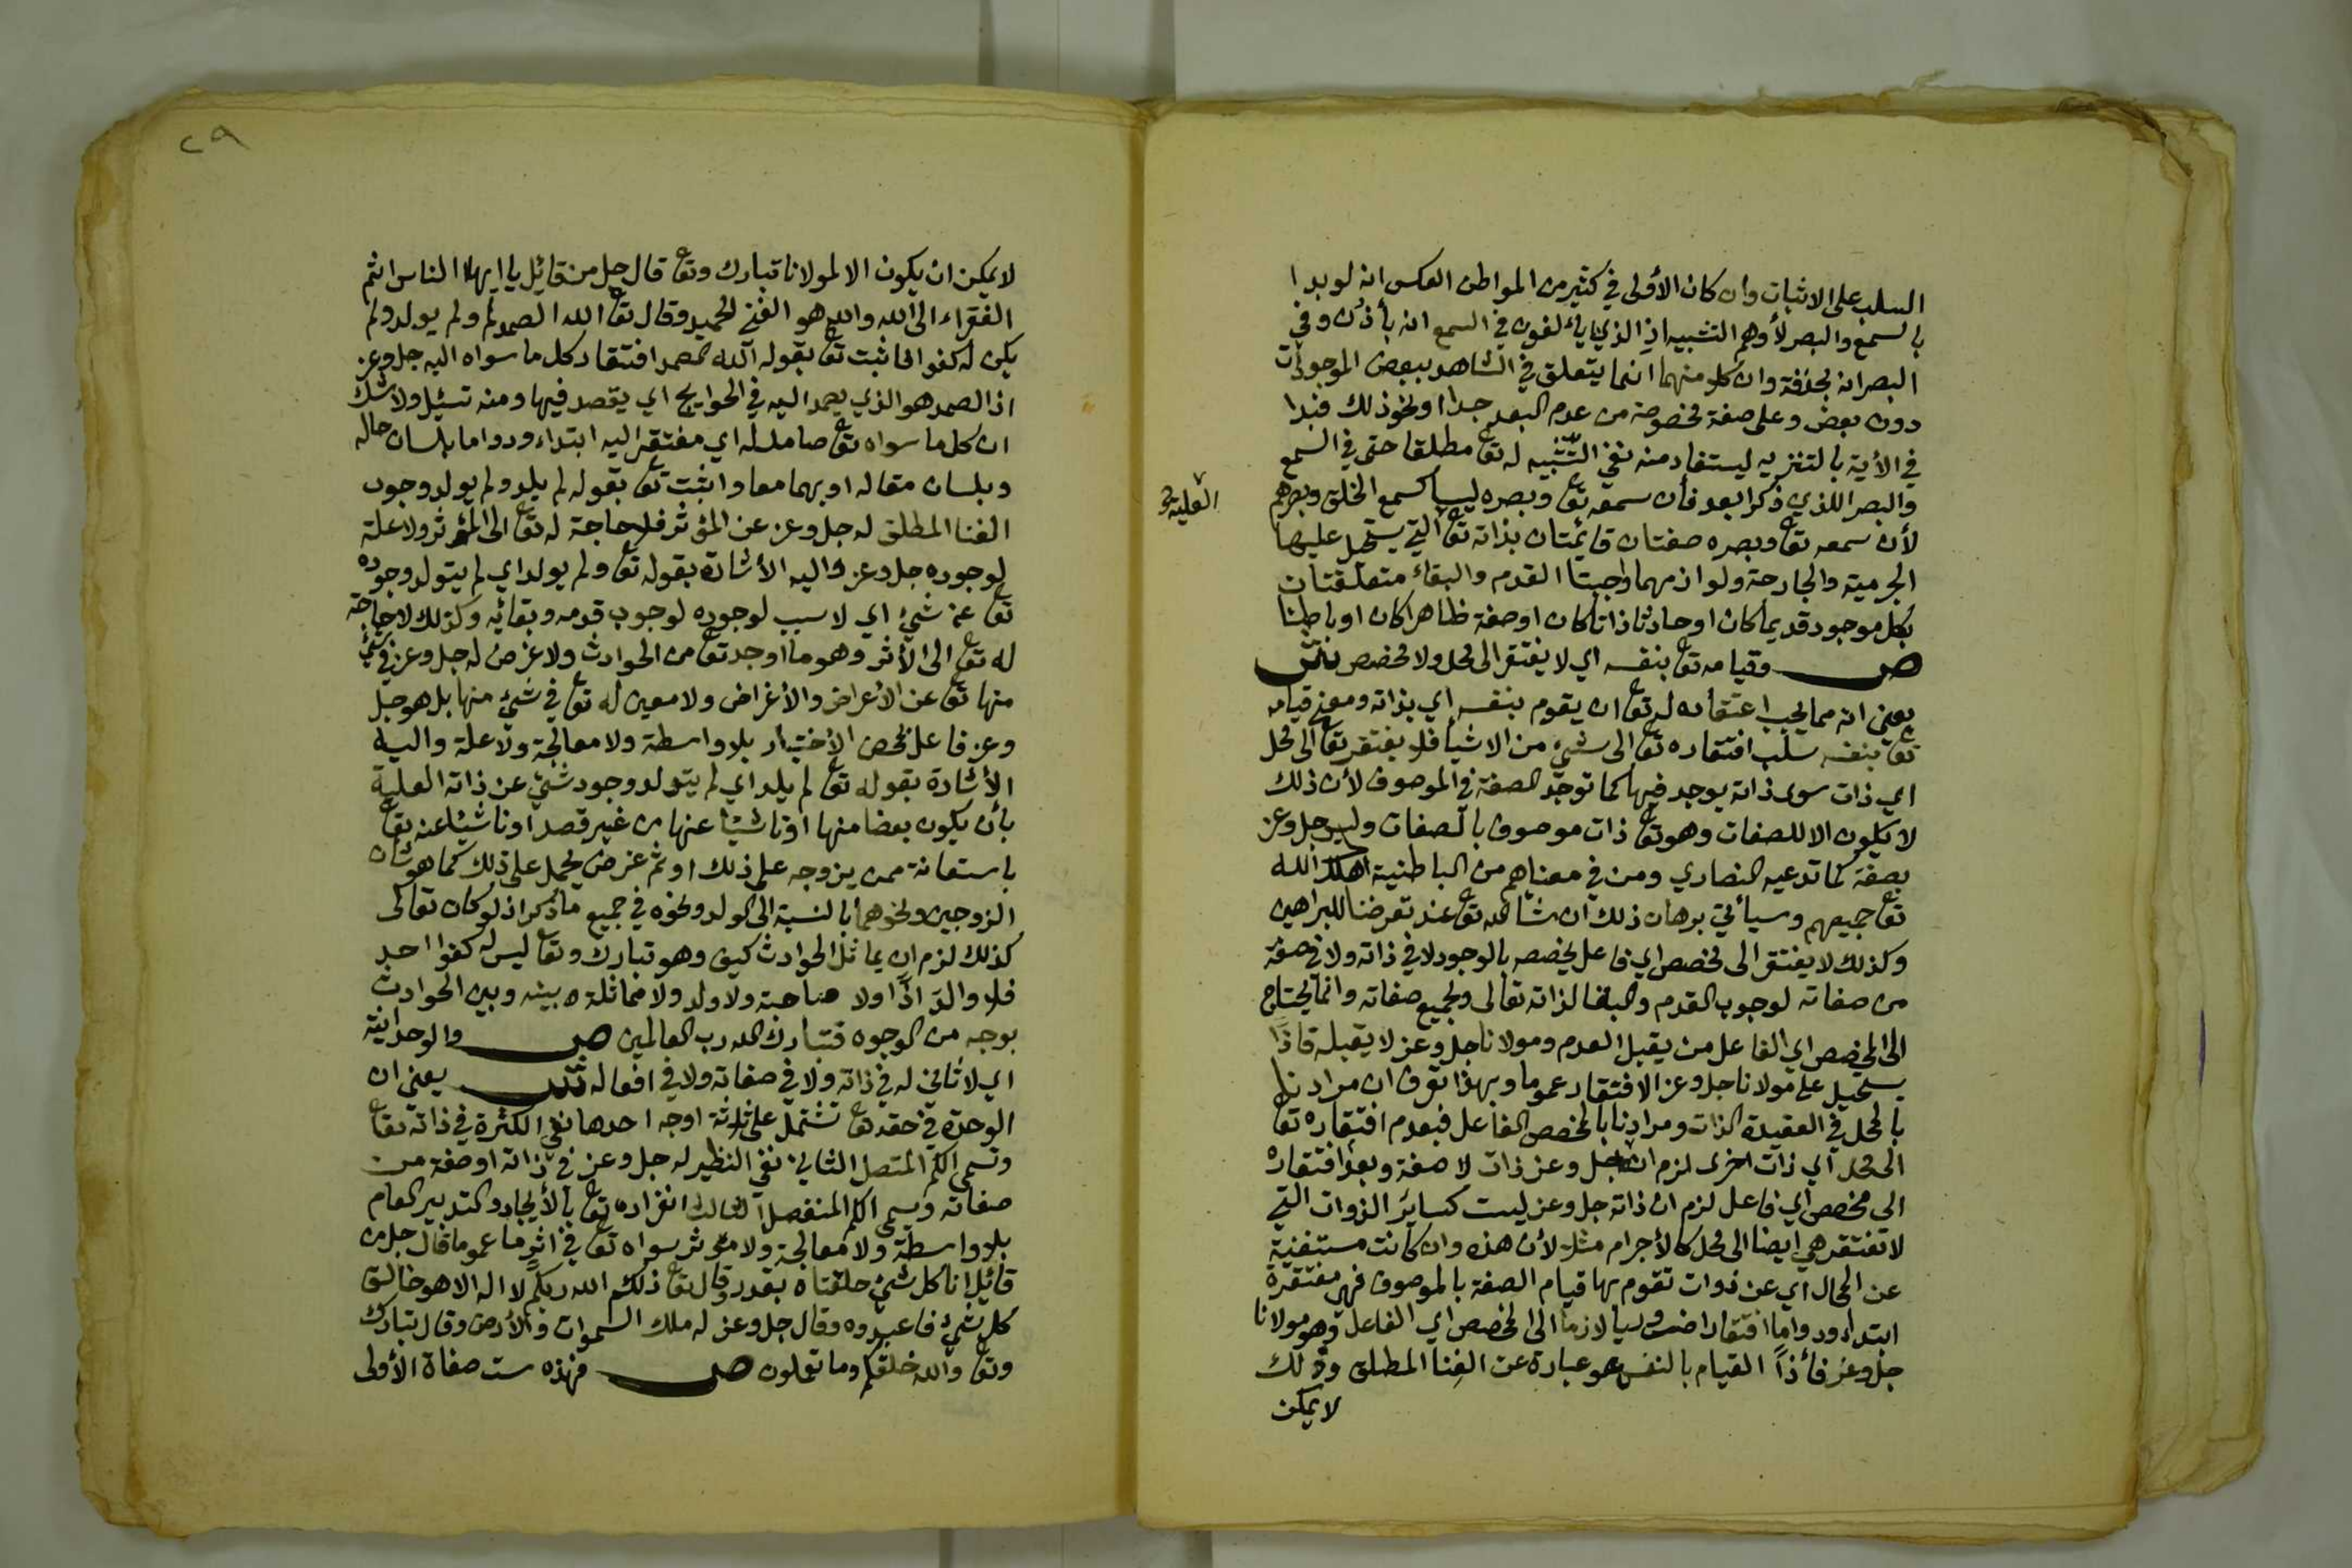 السلب على الاثبات وان كان الأولى في كثير من المواطن العكس انه لو بدا
بالسمع والبصر لأوهم التشبيه اذ الذي يألفون في السمع انه بأذن وفي
البصر انه بحدقة وان كلا منهما انما يتعلق في الشاهد ببعض الموجودات
دون بعض وعلى صفة مخصوصة من عدم البعد جدا ونحو ذلك فبدا
في الأية بالتنزيه ليستفاد منه نفي التشبيه له تع مطلقا حتى في السمع
والبصر اللذي ذكرا بعد فأن سمعه تع وبصره ليسا كسمع الخلق وبصرهم
لأن سمعه تع وبصره صفتان قائمتان بذاته تع التي يستحيل عليها
العلية
الجرمية والجارحة ولوازمهما واجبتا القدم والبقاء متعلقتان
بكل موجود قديما كان او حادثا ذاتا كان او صفة ظاهرا كان او باطنا
ص وقيامه تع بنفسه اي لا يفتقر الى محل ولا مخصص ش
يعني انه مما يجب اعتقاده له تع ان يقوم بنفسه اي بذاته ومعنى قيامه
تع بنفسه سلب افتقاره تع الى شيئ من الاشيأ فلا يفتقر تع الى محل
اي ذات سوى ذاته يوجد فيها كما توجد الصفة في الموصوف لأن ذلك
لا يكون الا للصفات وهو تع ذات موصوف بالصفات وليس جل وعز
بصفة كما تدعيه النصارى ومن في معناهم من الباطنية اهلك الله
تع جميعهم وسيأتي برهان ذلك ان شا الله تع عند تعرضنا للبراهين
وكذلك لا يفتقر الى مخصص اي فاعل يخصصه بالوجود لا في ذاته ولا في صفة
من صفاته لوجوب القدم والبقا لذاته تعالى ولجميع صفاته وانما يحتاج
الى المخصص اي الفاعل من يقبل العدم ومولانا جل وعز لا يقبله فاذًا
يستحيل على مولانا جل وعز الافتقار عموما وبهذا تعرف ان مرادنا
بالمحل في العقيدة الذات ومرادنا بالمخصص الفاعل فبعدم افتقاره تع
الى محل اي ذات اخرى لزم انه جل وعز ذات لا صفة وبعدم افتقاره
الى مخصص اي فاعل لزم ان ذاته جل وعز ليست كسائر الذوات التي
لا تفتقر هي ايضا الى محل كالأجرام مثلا لأن هذه وان كانت مستغنية
عن المحال اي عن ذوات تقوم بها قيام الصفة بالموصوف فهي مفتقرة
ابتداء ودواما افتقارا ضروريا لازما الى المخصص اي الفاعل وهو مولانا
جل وعز فأذًا القيام بالنفس هو عبارة عن الغنا المطلق وذلك
لا يمكن
٢٩
لا يمكن ان يكون الا لمولانا تبارك وتع قال جل من قائل يا ايها الناس انتم
الفقراء الى الله والله هو الغني الحميد وقال تع الله الصمد لم ولم يولد ولم
يكن له كفوا فاثبت تع بقوله الله الصمد افتقار كل ما سواه اليه جل وعز
اذ الصمد هو الذي يصمد اليه في الحوايج اي يقصد فيها ومنه تسئل ولا شك
ان كل ما سواه تع صامد له اي مفتقر اليه ابتداء ودواما بلسان حاله
وبلسان مقاله او بهما معا واثبت تع بقوله لم يلد ولم يولد وجوب
الغنا المطلق له جل وعز عن المؤثر فلا حاجة له تع الى المؤثر ولا علة
لوجوده جل وعز واليه الأشارة بقوله تع ولم يولد اي لم يتولد وجوده
تع عن شيئ اي لا سبب لوجوده لوجوب قدمه وبقائه وكذلك لا حاجة
له تع الى الأثر وهو ما اوجد تع من الحوادث ولا غرض له جل وعز في شيئ
منها تع عن الأعراض والأغراض ولا معين له تع في شيئ منها بل هو جل
وعز فاعل بمحض الأختيار بلا واسطة ولا معالجة ولا علة واليه
الأشارة بقوله تع لم يلد اي لم يتولد وجود شيئ عن ذاته العلية
بأن يكون بعضا منها او ناشيئا عنها من غير قصد او ناشيئا عنه تع
باستعانة ممن يزوجه على ذلك او ثم غرض يحمل على ذلك كما هو شان
الزوجين ونحوهما بالنسبة الى الولد ونحوه في جميع ما ذكر اذ لو كان تعالى
كذلك لزم ان يماثل الحوادث كيف وهو تبارك وتع ليس له كفوا احد
فلا والد اذًا ولا صاحبة ولا ولد ولا مماثلة بينه وبين الحوادث
بوجه من الوجوه فتبارك الله رب العالمين ص والوحدانية
اي لا ثاني له في ذاته ولا في صفاته ولا في افعاله ش يعني ان
الوحدة في حقه تع تشتمل على ثلاثة اوجه احدها نفي الكثرة في ذاته تع
وتسمى الكم المتصل الثاني نفي النظير له جل وعز في ذاته او صفة من
صفاته ويسمى الكم المنفصل الثالث انفراده تع بالأيجاد والتدبير العام
بلا واسطة ولا معالجة ولا مؤثر سواه تع في اثر ما عموما قال جل من
قائل انا كل شيئ خلقناه بقدر وقال تع ذلكم الله ربكم لا اله الا هو خالق
كل شيئ فاعبدوه وقال جل وعز له ملك السموات والأرض وقال تبارك
وتع والله خلقكم وما تعملون ص فهذه ست صفاة الأولى